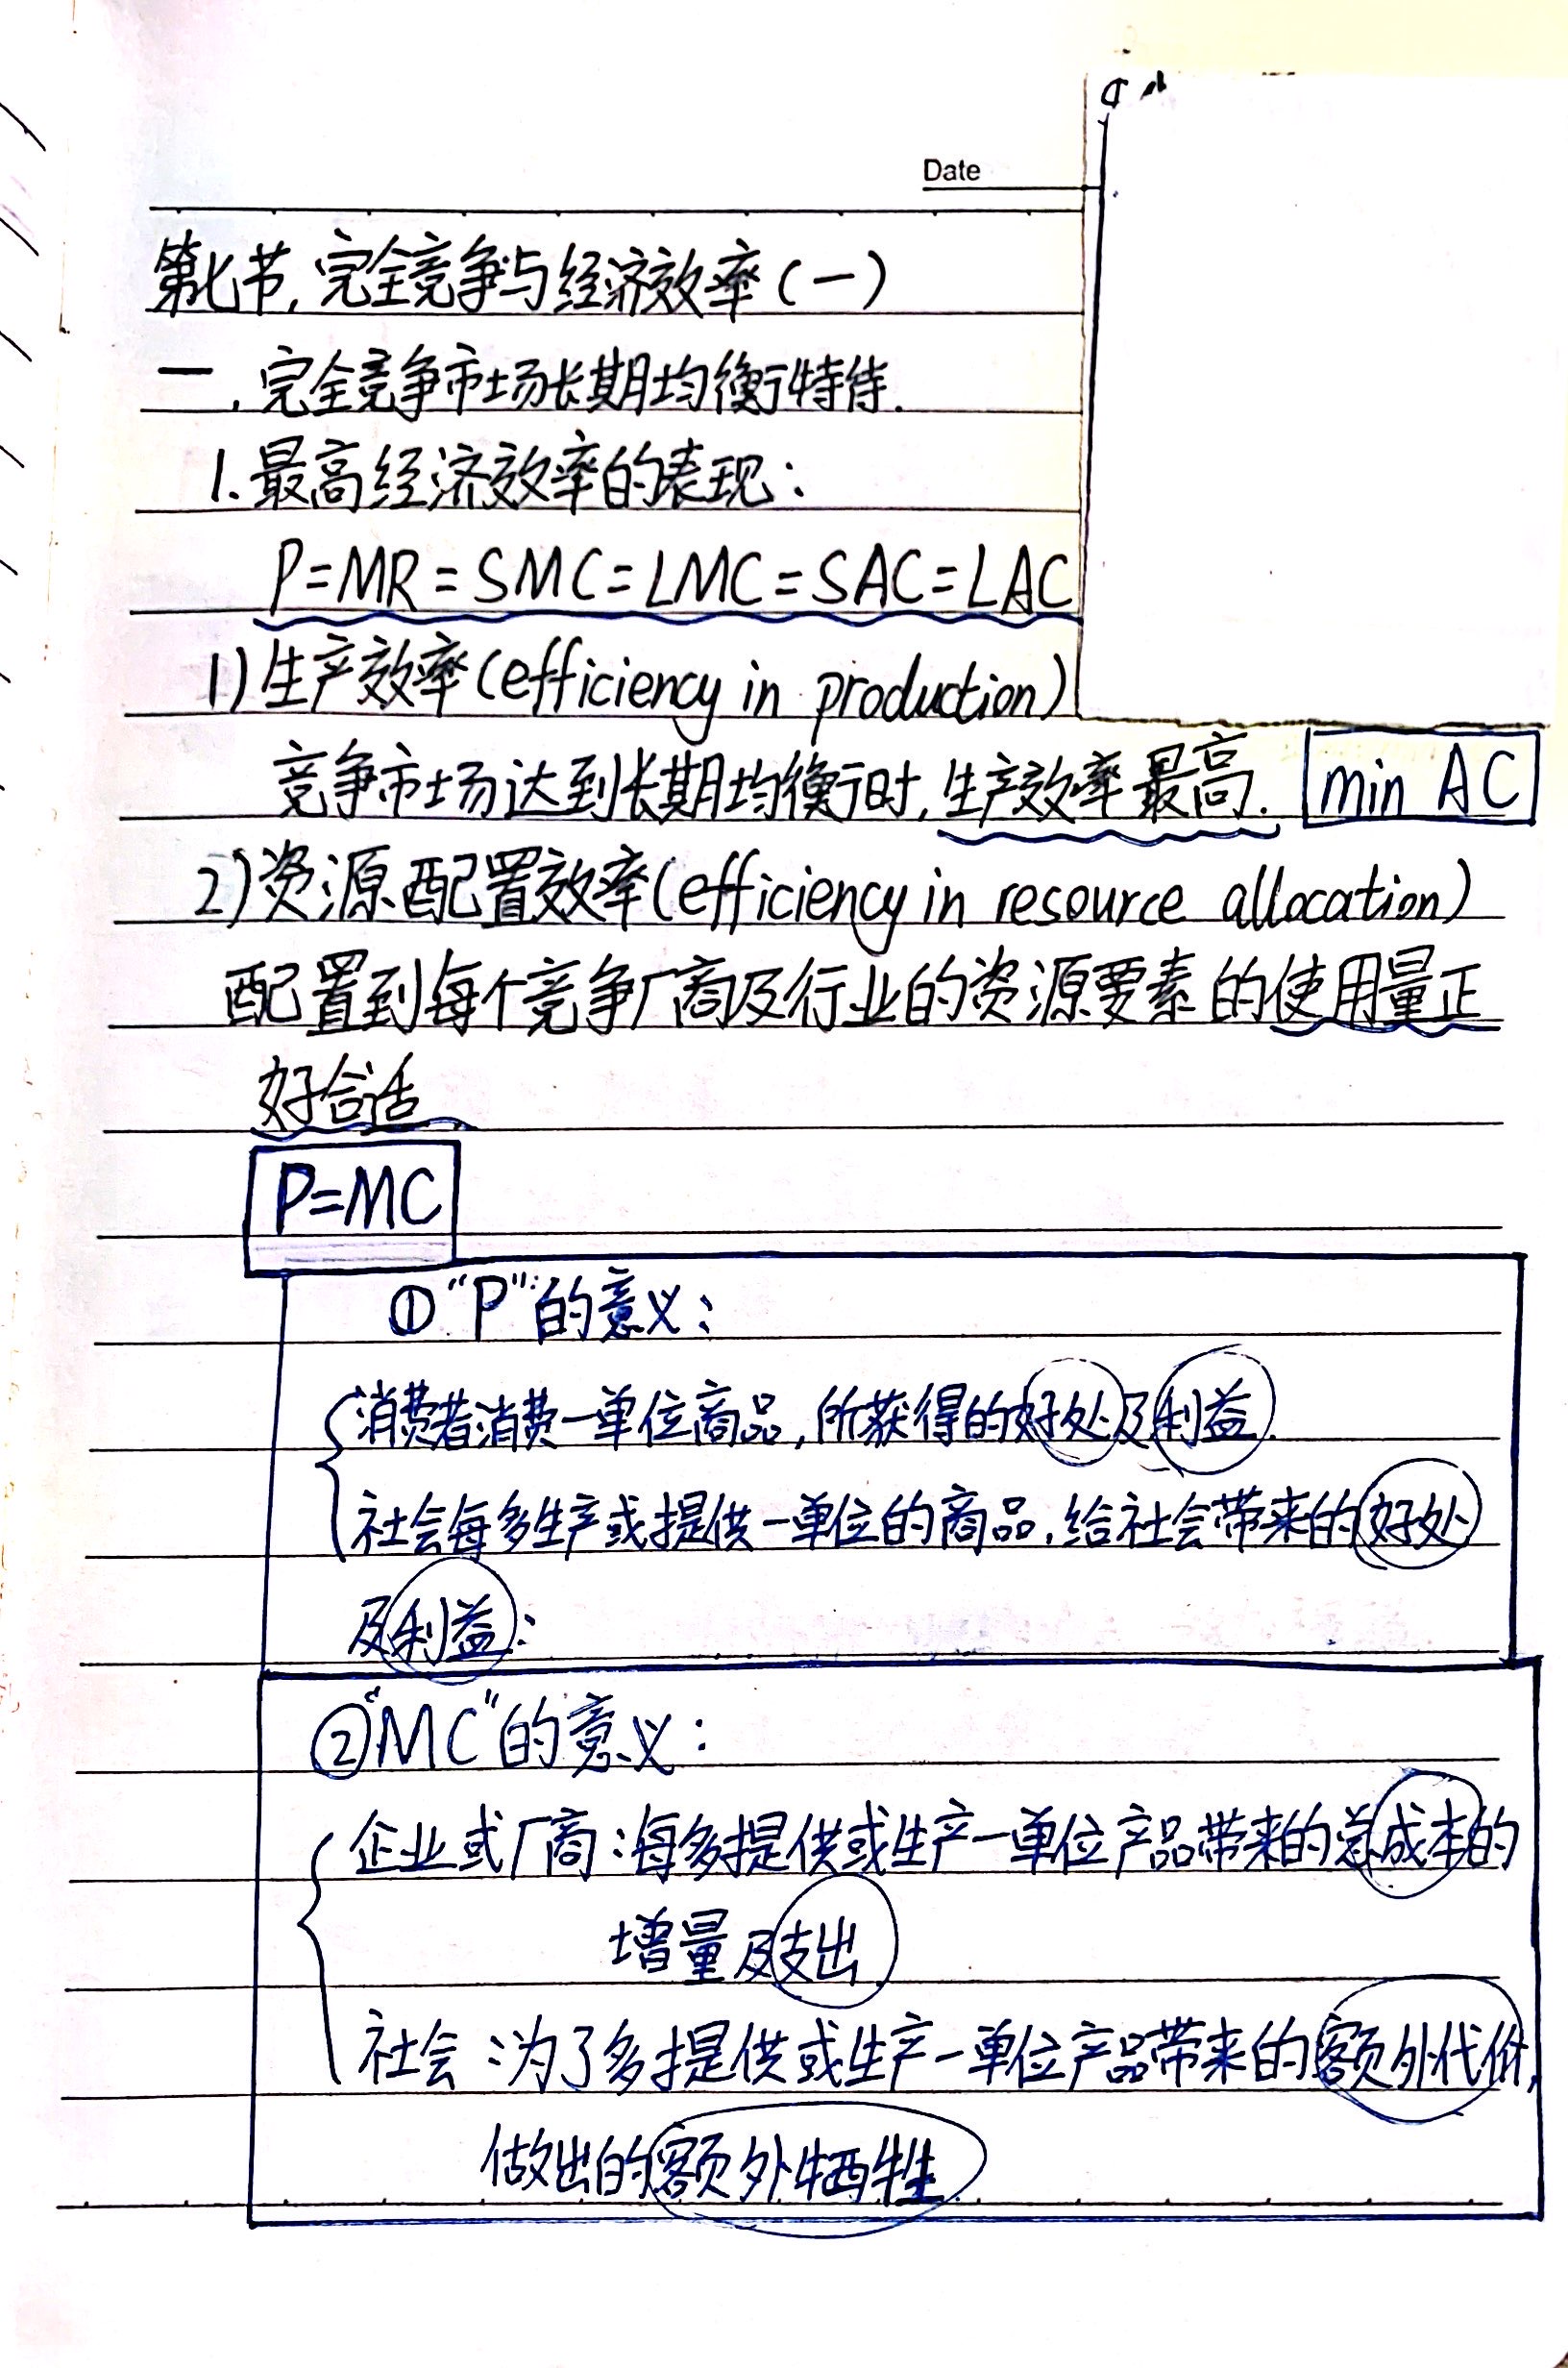 Date
第七节,完全竞争与经济效率(一)
一,完全竞争市场长期均衡特待.
1.最高经济效率的表现:
P=MR=SMC=LMC=SAC=LAC
1)生产效率(efficiency in production)
竞争市场达到长期均衡时,生产效率最高. min AC
2)资源配置效率(efficiency in resource allocation)
配置到每个竞争厂商及行业的资源要素的使用量正
好合适
P=MC
①"P"的意义:
消费者消费一单位商品,所获得的好处及利益.
社会每多生产或提供一单位的商品,给社会带来的好处
及利益:
②"MC"的意义:
企业或厂商:每多提供或生产一单位产品带来的总成本的
增量及支出.
社会:为了多提供或生产一单位产品带来的额外代价,
做出的额外牺牲.